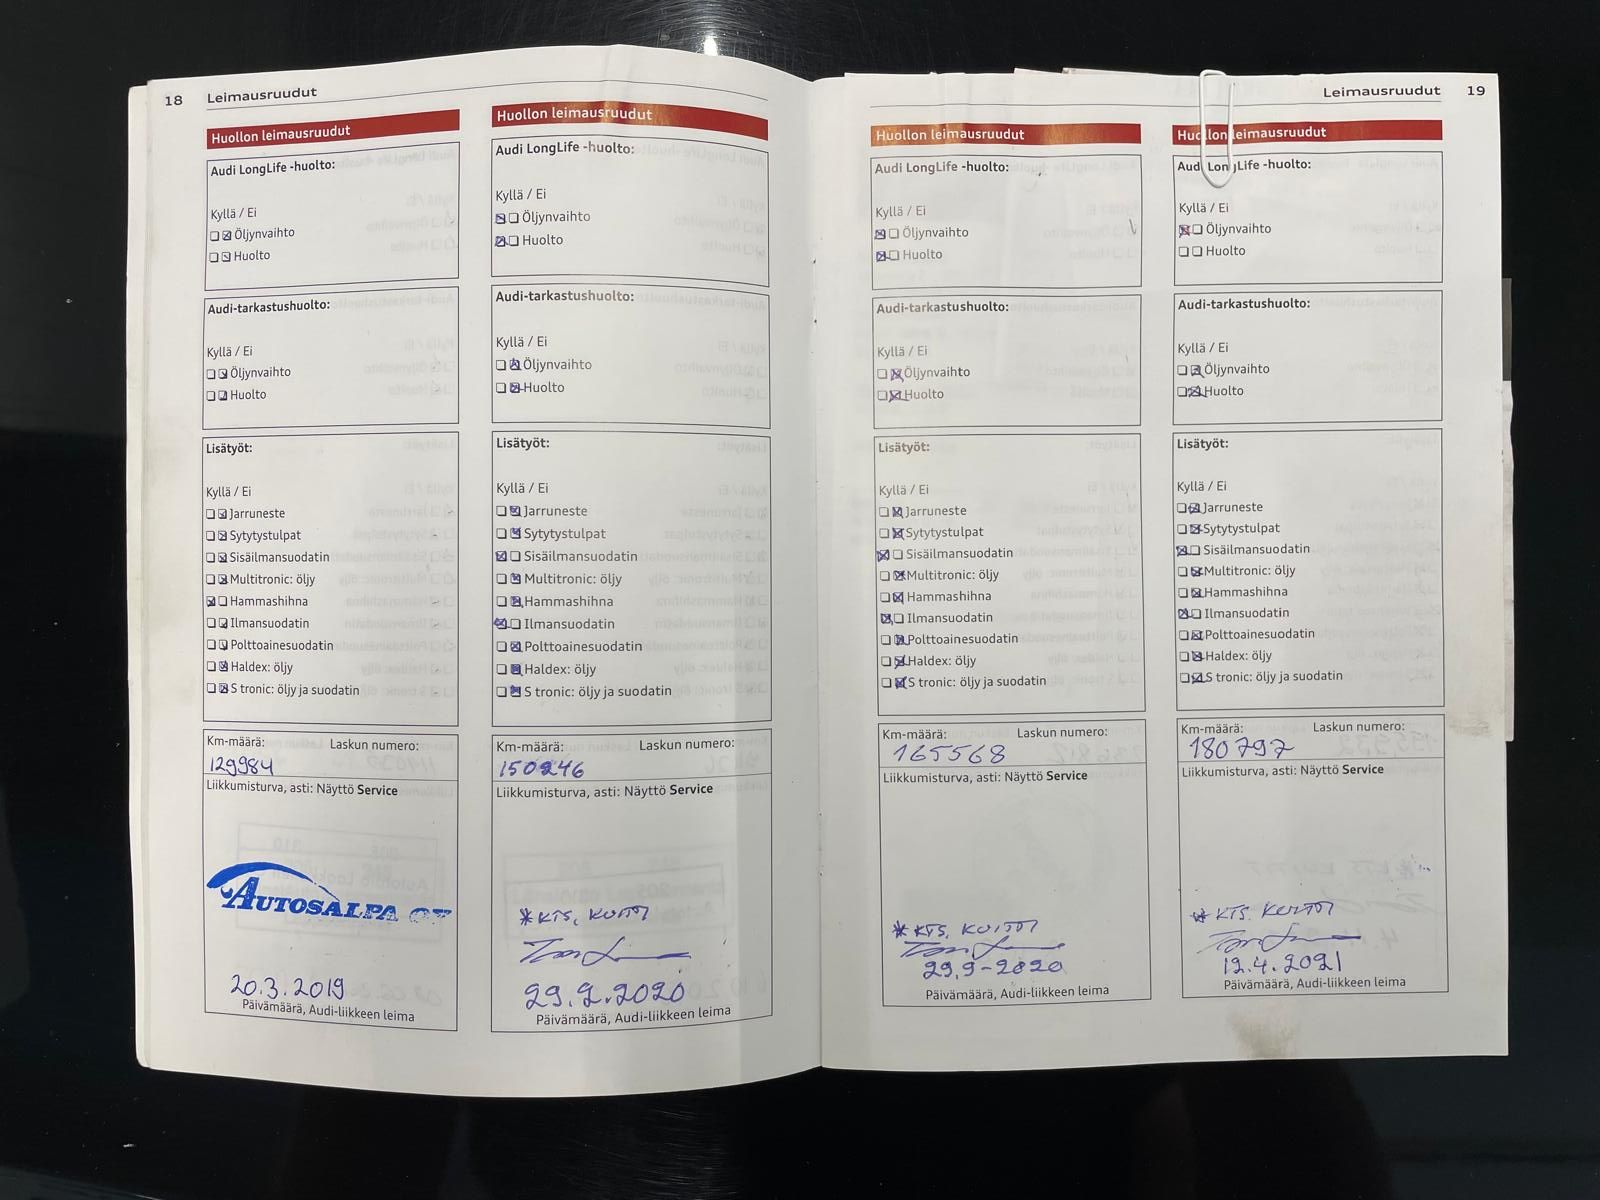 18 Leimausruudut
Huollon leimausruudut
Audi LongLife -huolto:
Kyllä / Ei
Öljynvaihto
Huolto
Audi-tarkastushuolto:
Kyllä / Ei
Öljynvaihto
Huolto
Lisätyöt:
Kyllä / Ei
Jarruneste
Sytytystulpat
Sisäilmansuodatin
Multitronic: öljy
Hammashihna
Ilmansuodatin
Polttoainesuodatin
Haldex: öljy
S tronic: öljy ja suodatin
Km-määrä: Laskun numero:
129984
Liikkumisturva, asti: Näyttö Service
AUTOSALPA OY
20.3.2019
Päivämäärä, Audi-liikkeen leima
Huollon leimausruudut
Audi LongLife -huolto:
Kyllä / Ei
Öljynvaihto
Huolto
Audi-tarkastushuolto:
Kyllä / Ei
Öljynvaihto
Huolto
Lisätyöt:
Kyllä / Ei
Jarruneste
Sytytystulpat
Sisäilmansuodatin
Multitronic: öljy
Hammashihna
Ilmansuodatin
Polttoainesuodatin
Haldex: öljy
S tronic: öljy ja suodatin
Km-määrä: Laskun numero:
150246
Liikkumisturva, asti: Näyttö Service
*KTS. KUITTI
29.2.2020
Päivämäärä, Audi-liikkeen leima
Leimausruudut 19
Huollon leimausruudut
Audi LongLife -huolto:
Kyllä / Ei
Öljynvaihto
Huolto
Audi-tarkastushuolto:
Kyllä / Ei
Öljynvaihto
Huolto
Lisätyöt:
Kyllä / Ei
Jarruneste
Sytytystulpat
Sisäilmansuodatin
Multitronic: öljy
Hammashihna
Ilmansuodatin
Polttoainesuodatin
Haldex: öljy
S tronic: öljy ja suodatin
Km-määrä: Laskun numero:
165568
Liikkumisturva, asti: Näyttö Service
*KTS. KUITTI
29.9-2020
Päivämäärä, Audi-liikkeen leima
Huollon leimausruudut
Audi LongLife -huolto:
Kyllä / Ei
Öljynvaihto
Huolto
Audi-tarkastushuolto:
Kyllä / Ei
Öljynvaihto
Huolto
Lisätyöt:
Kyllä / Ei
Jarruneste
Sytytystulpat
Sisäilmansuodatin
Multitronic: öljy
Hammashihna
Ilmansuodatin
Polttoainesuodatin
Haldex: öljy
S tronic: öljy ja suodatin
Km-määrä: Laskun numero:
180797
Liikkumisturva, asti: Näyttö Service
* KTS. KUITTI
12.4.2021
Päivämäärä, Audi-liikkeen leima